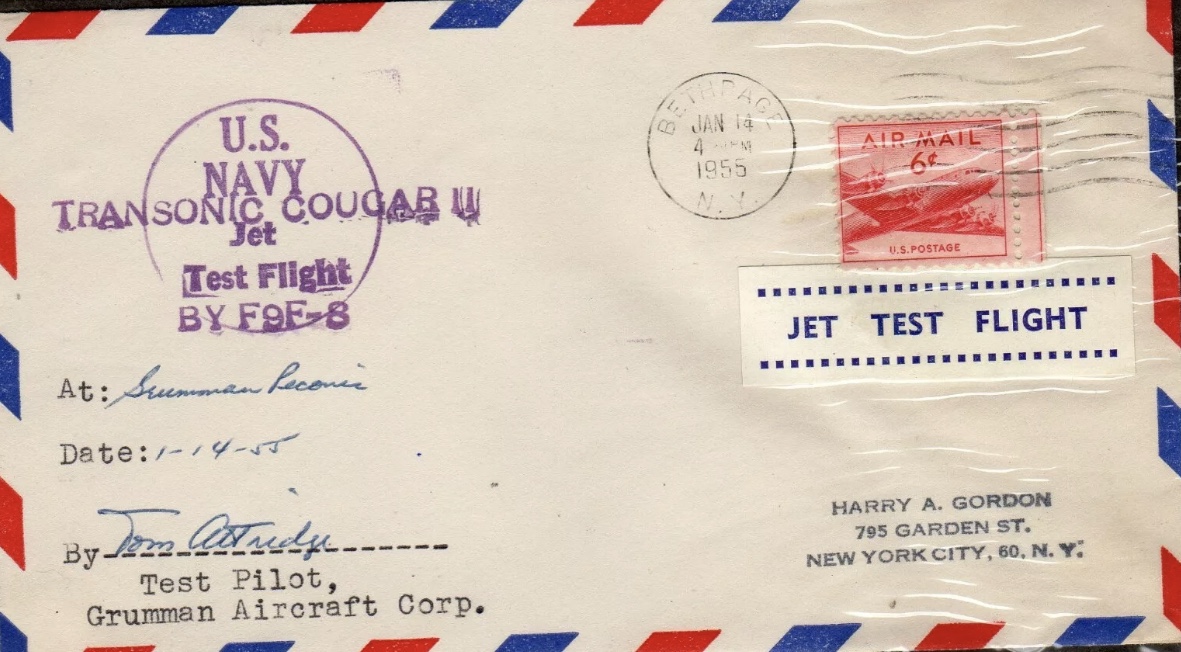 U.S.
NAVY
TRANSONIC COUGAR II
Jet
Test Flight
BY F9F-8
BETHPAGE
JAN 14
4 PM
1955
N. Y.
AIR MAIL
6¢
U.S. POSTAGE
JET TEST FLIGHT
At: Grumman Peconic
Date: 1-14-55
By Tom Attridge
Test Pilot,
Grumman Aircraft Corp.
HARRY A. GORDON
795 GARDEN ST.
NEW YORK CITY, 60, N. Y.